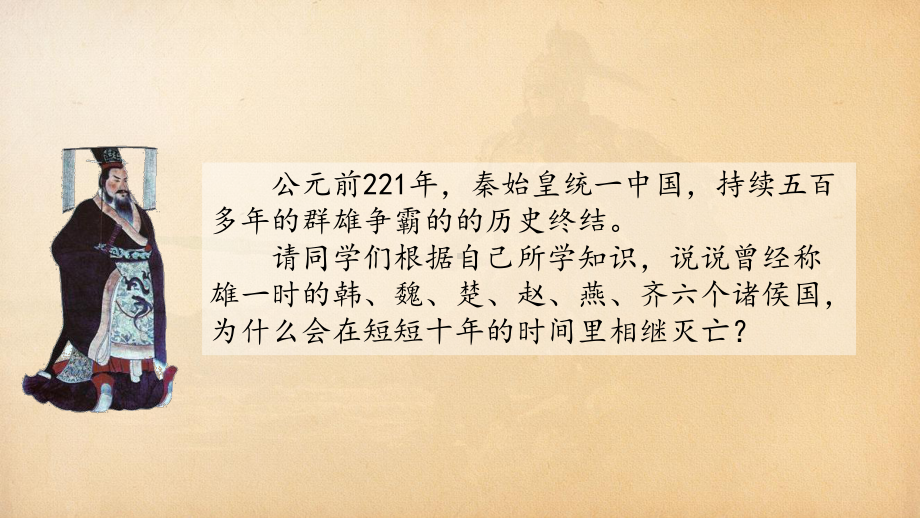 公元前221年，秦始皇统一中国，持续五百
多年的群雄争霸的的历史终结。
请同学们根据自己所学知识，说说曾经称
雄一时的韩、魏、楚、赵、燕、齐六个诸侯国，
为什么会在短短十年的时间里相继灭亡？